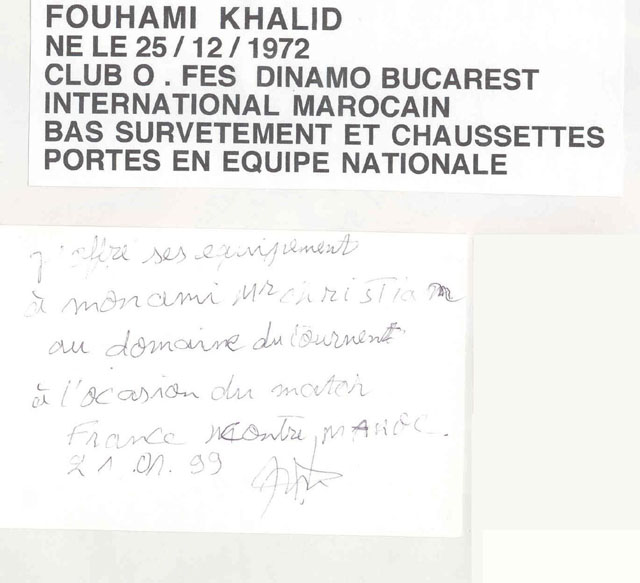 FOUHAMI KHALID
NE LE 25 / 12 / 1972
CLUB O . FES DINAMO BUCAREST
INTERNATIONAL MAROCAIN
BAS SURVETEMENT ET CHAUSSETTES
PORTES EN EQUIPE NATIONALE
j'offre ses equipement
à mon ami Mr christian
au domaine du tournent
à l'ocasion du match
France contre, MAROC.
21.01.99